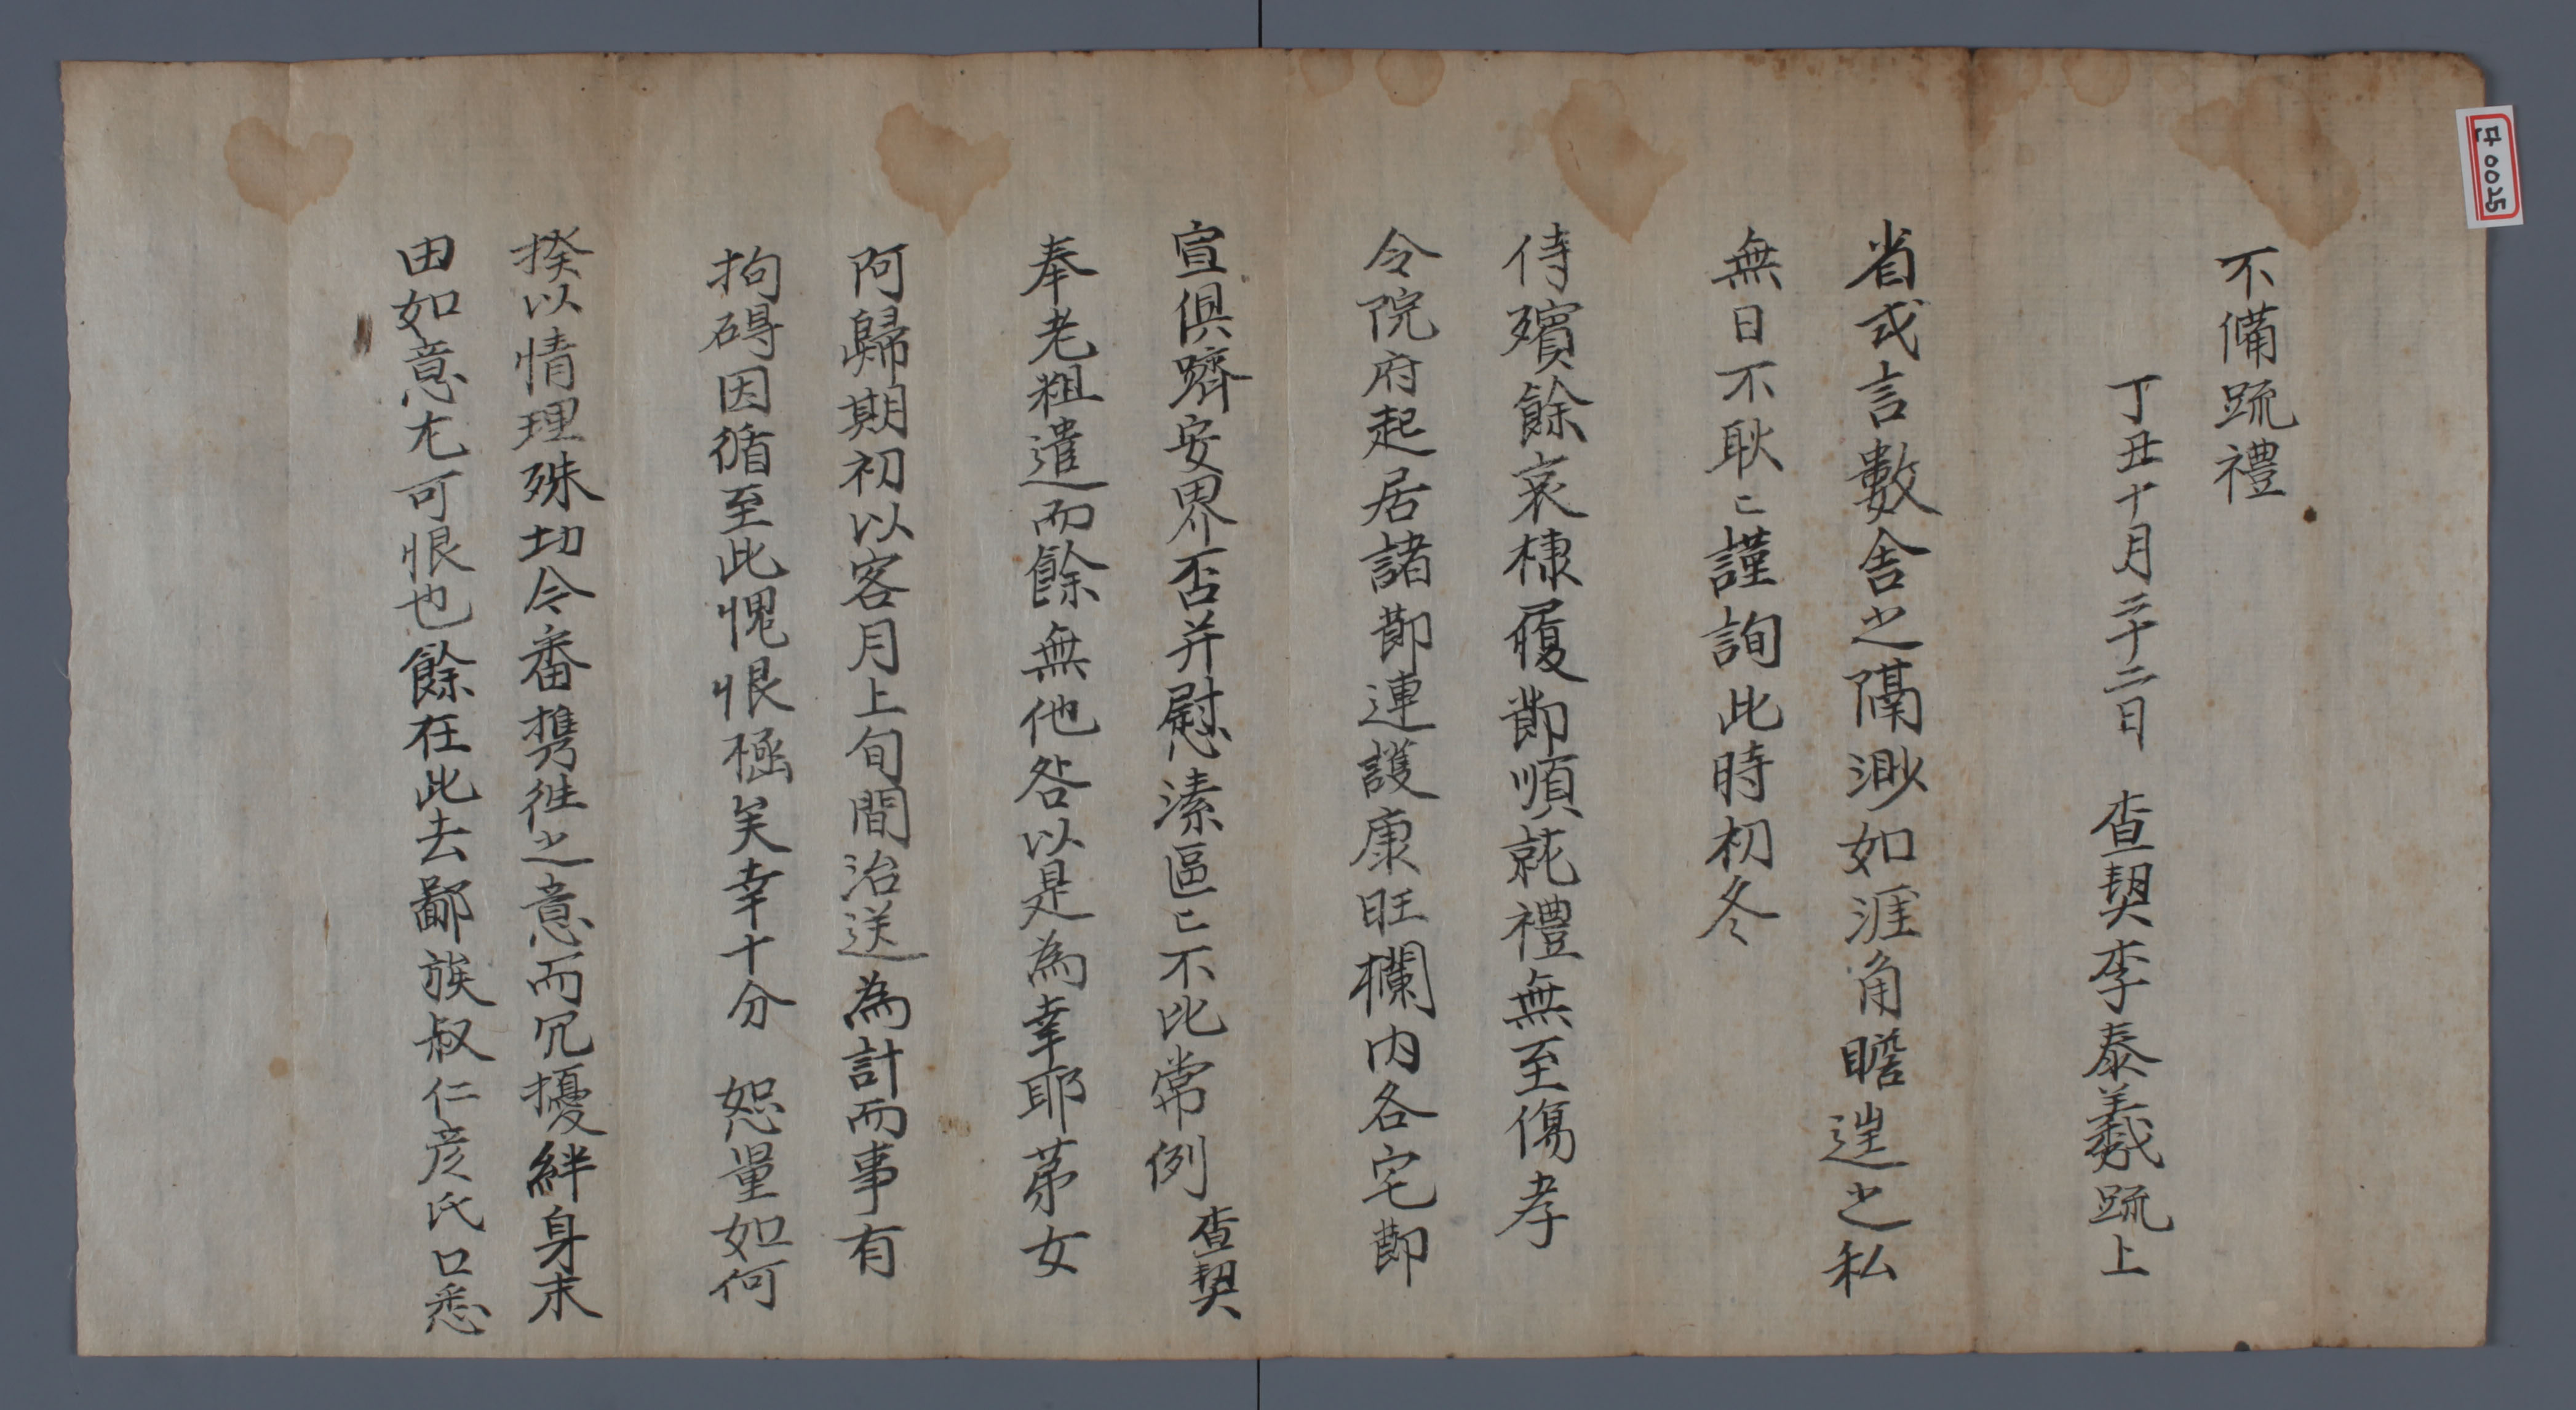 省式言數舍之隔渺如涯角瞻之私
無日不耿〻謹詢此時初冬
侍殯餘哀棣履節順就禮無至傷孝
令院府起居諸節連護康旺欄内各宅節
宣俱躋安界否并慰溸區〻不比常例査契
奉老粗遣而餘無他咎以是為幸耶苐女
阿歸期初以客月上旬間治送為計而事有
拘碍因循至此愧恨極矣幸十分 恕量如何
揆以情理殊切令番携徃之意而冗擾絆身末
田如意尤可恨也餘在此去鄙族叔仁彦氏口悉
不備疏禮
丁丑十月二十二日 査契李泰羲疏上
단 0025